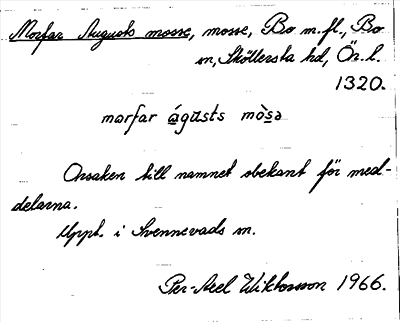 Morfar Augusts mosse, mosse, Bo m.fl., Bo
sn, Sköllersta hd, Ör. l.
1320.
morfar águsts mòsa
Orsaken till namnet obekant för med-
delarna.
Uppt. i Svennevads sn.
Per-Axel Wiktorsson 1966.